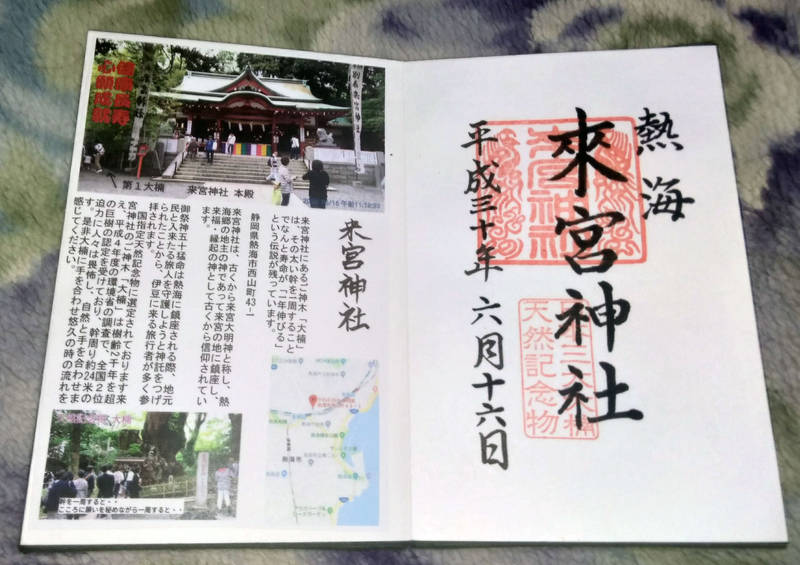 熱海
來宮神社
平成三十年 六月十六日
天然記念物
健康長寿
心願成就
第1大楠
来宮神社 本殿
来宮神社
来宮神社にあるご神木「大楠」
は、その太い幹を一周すること
でなんと寿命が「一年伸びる」
という伝説が残っています。
静岡県熱海市西山町43-1
来宮神社は、古くから来宮大明神と称し、熱
海郷の地主の神であって来宮の地に鎮座し、
来福・縁起の神として古くから信仰されてい
ます。
御祭神五十猛命は熱海に鎮座される際、地元
民と入来たる旅人を守護しようと神託をつげ
られたことから、伊豆に来る旅行者が多く参
拝されます。
国指定天然記念物に選定されております来
宮神社のご神木「大楠」は樹齢2千年を超
え、平成4年度の環境省の調査で、全国2位
の巨樹の認定を受けており、幹周り約24米の
迫力に人々は畏怖し、自然と手を合わせま
す。是非大楠に手を合わせ悠久の時の流れを
感じてください。
大楠
幹を一周すると・・
こころに願いを秘めながら一周すると・・
熱海市